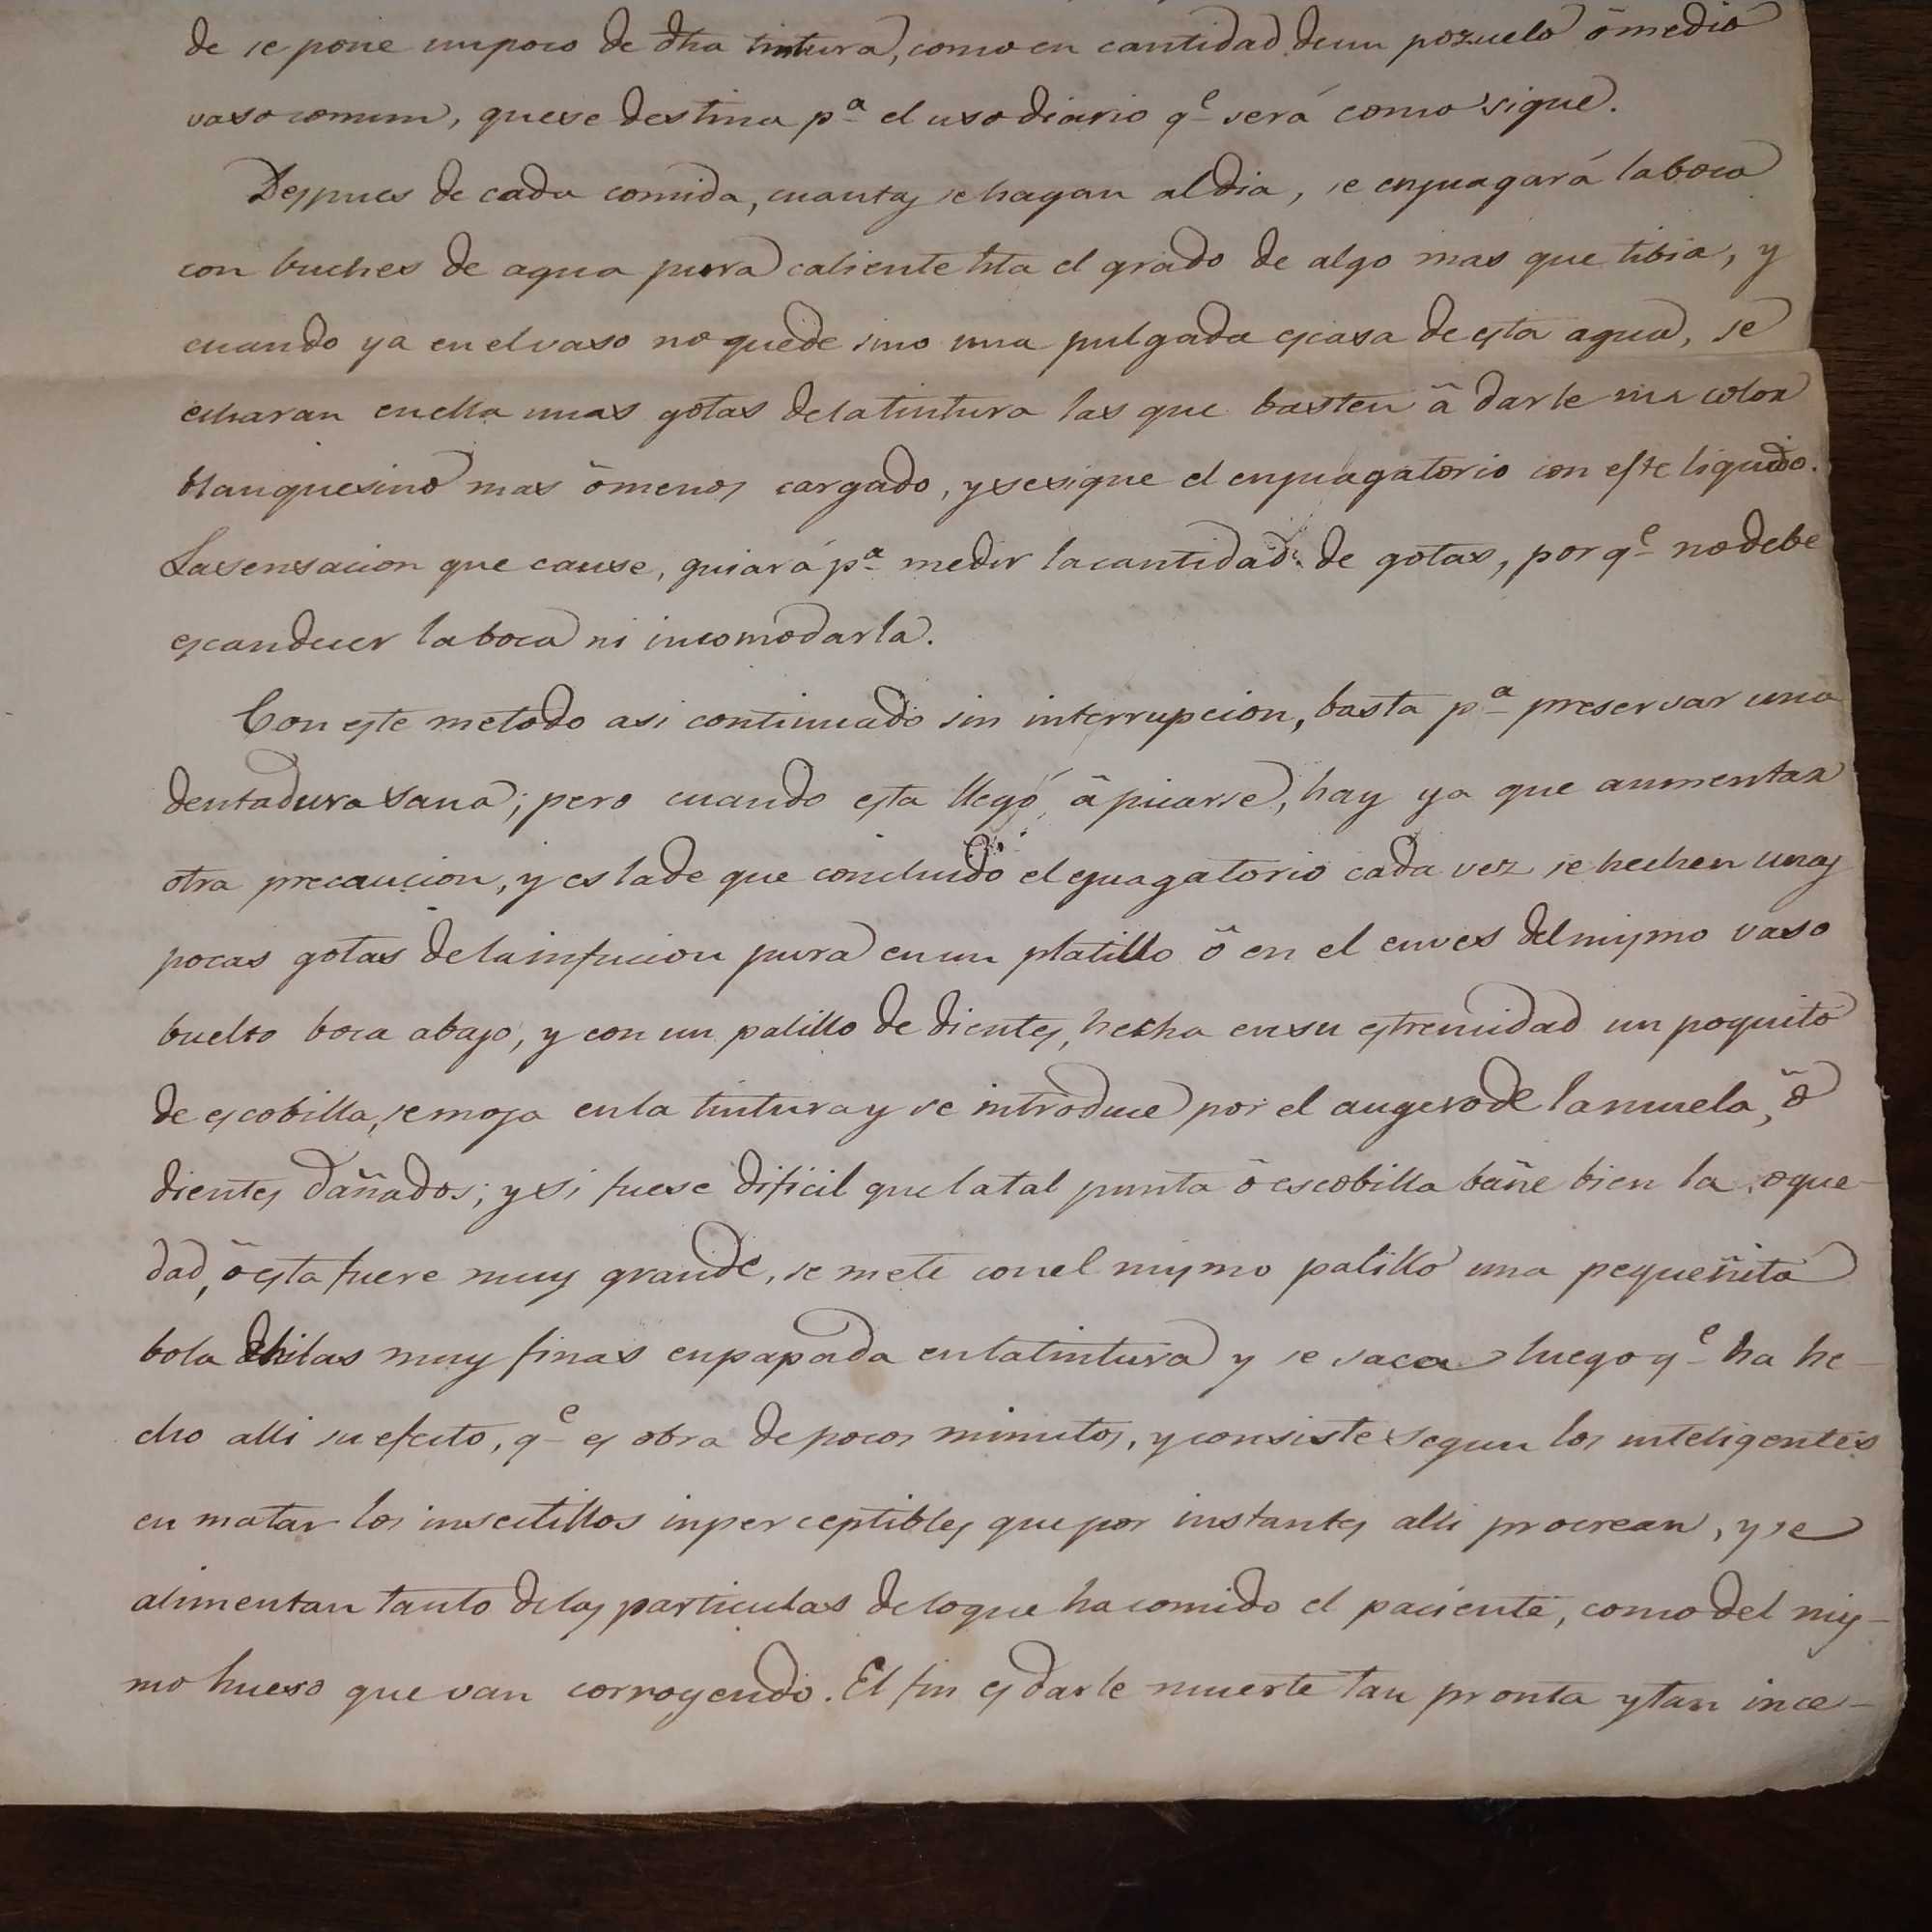 de se pone un poco de dha tintura, como en cantidad de un pozuelo ô medio
vaso comun, que se destina pª el uso diario qᵉ será como sigue.
Despues de cada comida, cuantas se hagan al dia, se enjuagará la boca
con buches de agua pura caliente hta el grado de algo mas que tibia, y
cuando ya en el vaso no quede sino una pulgada escasa de esta agua, se
echaran en ella unas gotas de la tintura las que basten â darle un color
blanquesino mas ô menos cargado, y se sigue el enjuagatorio con este liquido.
La sensacion que cause, guiará pª medir la cantidad de gotas, por qᵉ no debe
escandecer la boca ni incomodarla.
Con este metodo asi continuado sin interrupcion, basta pª preservar una
dentadura sana; pero cuando esta llegó â picarse, hay ya que aumentar
otra precaucion, y es la de que concluido el ejuagatorio cada vez se hechen unas
pocas gotas de la infucion pura en un platillo ô en el enves del mismo vaso
buelto boca abajo, y con un palillo de dientes, hecha en su estremidad un poquito
de escobilla, se moja en la tintura y se introduce por el augero de la muela, ô
dientes dañados; y si fuese dificil que la tal punta ô escobilla bañe bien la oque-
dad, ô esta fuere muy grande, se mete con el mismo palillo una pequeñita
bola de hilas muy finas enpapada en la tintura y se saca luego qᵉ ha he-
cho alli su efecto, qᵉ es obra de pocos minutos, y consiste segun los inteligentes
en matar los insectillos inperceptibles que por instantes alli procrean, y se
alimentan tanto de las particulas de lo que ha comido el paciente, como del mis-
mo hueso que van corroyendo. El fin es darle muerte tan pronta y tan ince-